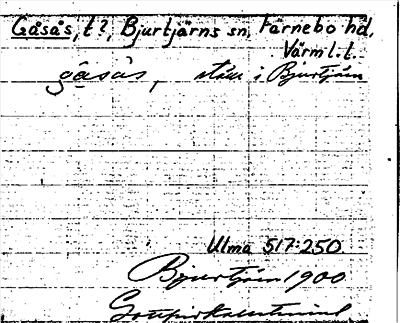 Gåsås, t?, Bjurtjärns sn, Färnebo hd,
Värml. l.
gåsås, i Bjurtjärn
Ulma 517:250.
Bjurtjärn 1900